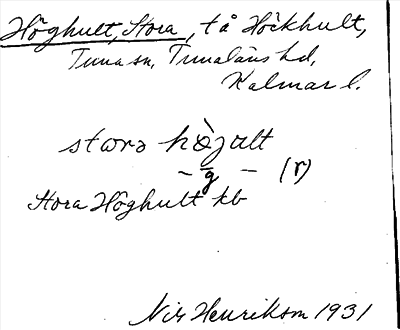 Höghult, Stora, t å Höckhult,
Tuna sn, Tunaläns hd,
Kalmar l.
stora hö̀jult
– g – (r)
Stora Höghult kb
Nils Henrikson 1931